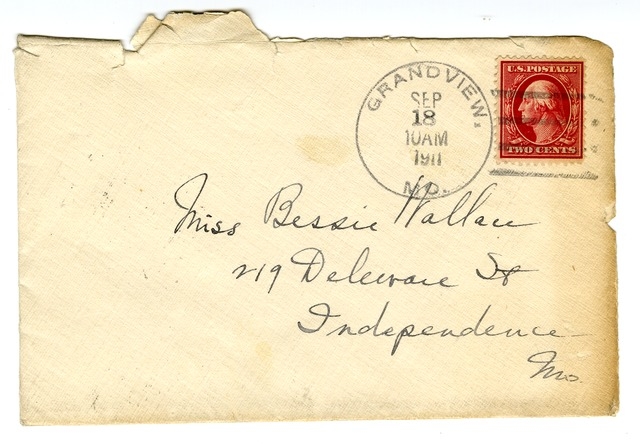 GRANDVIEW,
SEP
18
10AM
1911
MO.
U.S. POSTAGE
TWO CENTS
Miss Bessie Wallace
219 Deleware St
Independence
Mo.